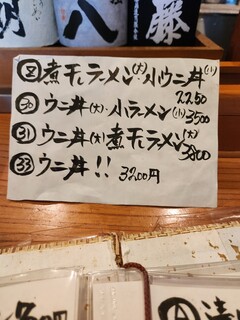 八 藤
㉙煮干ラーメン(大)小ウニ丼(小)
2250
㉚ウニ丼(大)・小ラーメン(小)
3500
㉛ウニ丼(大)煮干ラーメン(大)
3800
㉝ウニ丼!! 3200円